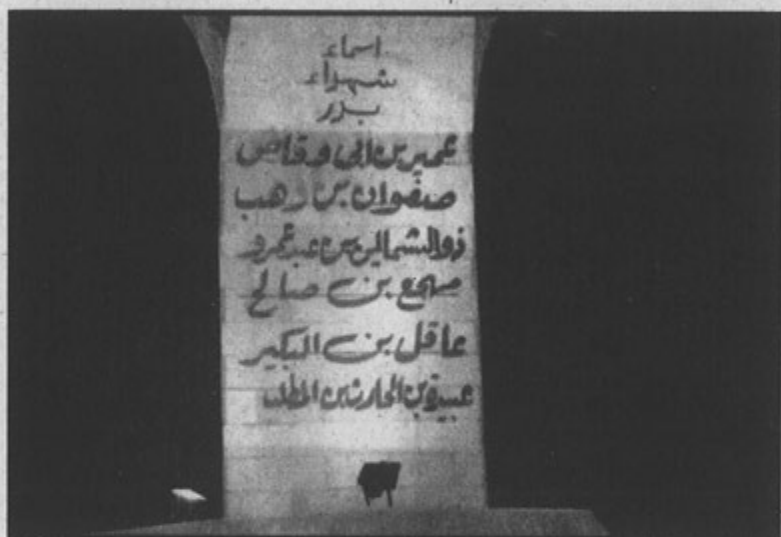 اسماء
شهداء
بدر
عمير بن ابى وقاص
صفوان بن وهب
ذوالشمالين بن عبد عمرو
مهجع بن صالح
عاقل بن البكير
عبيدة بن الحارث بن المطلب